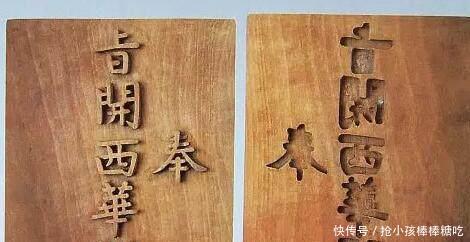 奉
旨開西華
奉
旨開西華
快传号 / 抢小孩棒棒糖吃